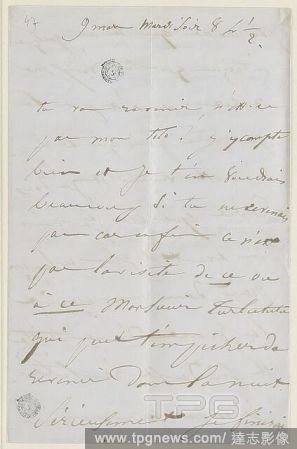 47
9 mars Mardi soir 8 h ½
tu vas revenir n'est-ce
pas mon toto? j'y compte
bien et je t'en voudrais
beaucoup si tu ne revenais
pas car enfin ce n'est
pas la visite de ce ou
à ce Monsieur
qui peut t'empêcher de
revenir dans la nuit
Sérieusement je
TPG
www.tpgnews.com / 達志影像